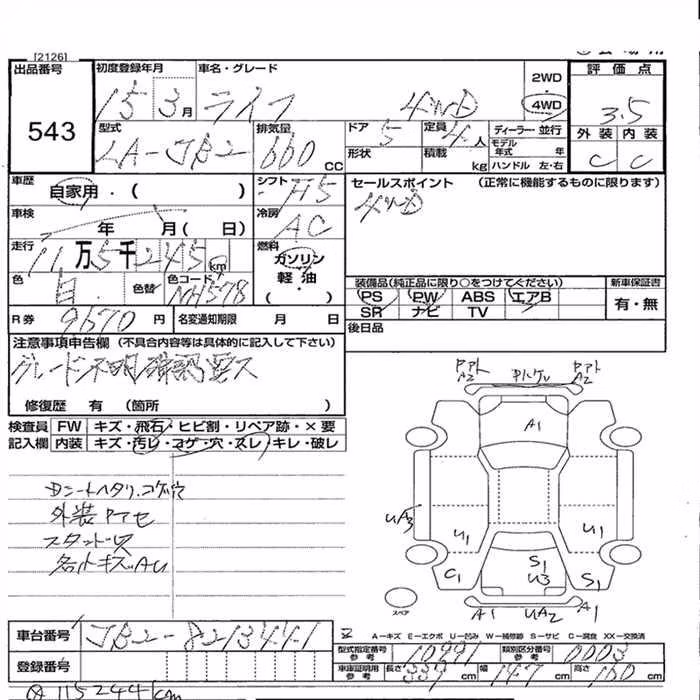 [2126]
出品番号 初度登録年月 車名・グレード 2WD 評価点
543 15 3月 ライフ 4WD 4WD 3.5
型式 排気量 ドア 定員 ディーラー 並行 外装 内装
LA-JB2 660CC 5 4人 モデル年式 年 C C
形状 積載 kg ハンドル 左・右
車歴 自家用・( ) シフト セールスポイント (正常に機能するものに限ります)
4WD
車検 年 月( 日) 冷房 AC
走行 11万5千245km 燃料 ガソリン
軽油
・
( )
色 白 色替 色コード NH578
装備品(純正品に限り○をつけてください) 新車保証書
PS PW ABS エアB 有・無
SR ナビ TV
R券 9670円 名変通知期限 月 日
後日品
注意事項申告欄 (不具合内容等は具体的に記入して下さい)
グレード不明確認
修復歴 有 (箇所 )
検査員 FW キズ・飛石・ヒビ割・リペア跡・×要
記入欄 内装 キズ・汚レ・コゲ・穴・スレ・キレ・破レ
A2 A2
A1
Dシートヘタリ.コゲ穴
外装
各小キズ.AU
UA3 U1 U1
C1 S1 U3 S1
スペア
A1 UA2 A1
車台番号 JB2-8213441
A−キズ E−エクボ U−凹ミ W−補修跡 S−サビ C−腐食 XX−交換済
型式指定番号 参考 10991 類別区分番号 参考 0003
登録番号
車庫証明用 参考 長さ 339cm 幅 147cm 高さ 160cm
115244km